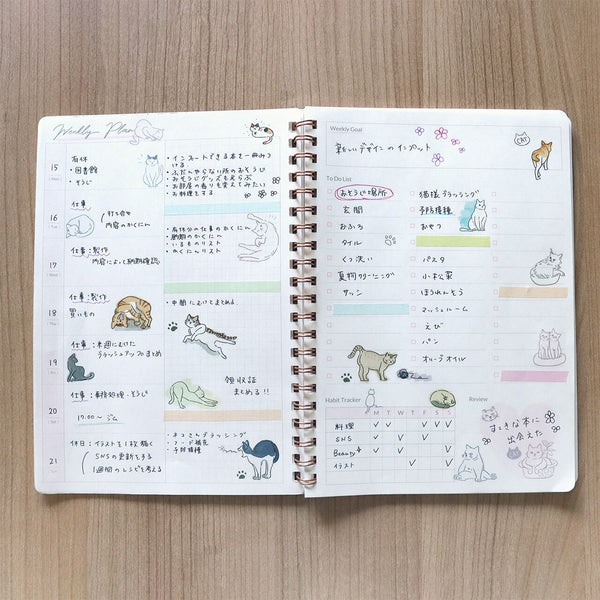 Weekly Plan
15
有休
・図書館
・そうじ
・インプットできる本を一冊みつける
・ふだんやらない所のおそうじ
・おそうじグッズも えらぶ
・お部屋の香りも変えてみたい
・お料理をする
16
仕事
打ち合せ
内容のかくにん
・有休分の仕事のかくにん
・納期のかくにん
・いるものリスト
・かくにんリスト
17
仕事:製作
内容によって納期確認
18
仕事:製作
買いもの
・中間にむけてまとめる
19
仕事:来週にむけた
ブラッシュアップまとめ
領収証
まとめる!!
20
仕事:事務処理・そうじ
17:00〜ジム
21
休日:イラストを1枚描く
SNSの更新をする
1週間のレシピを考える
・ねこさんブラッシング
・フード補充
・予防接種
Weekly Goal
新しいデザインのインプット
CAT
To Do List
おそうじ場所
玄関
おふろ
タイル
くつ洗い
夏物クリーニング
サッシ
猫様ブラッシング
予防接種
おやつ
パスタ
小松菜
ほうれんそう
マッシュルーム
えび
パン
オリーブオイル
Habit Tracker
M T W T F S S
料理
SNS
Beauty
イラスト
Review
すてきな本に
出会えた